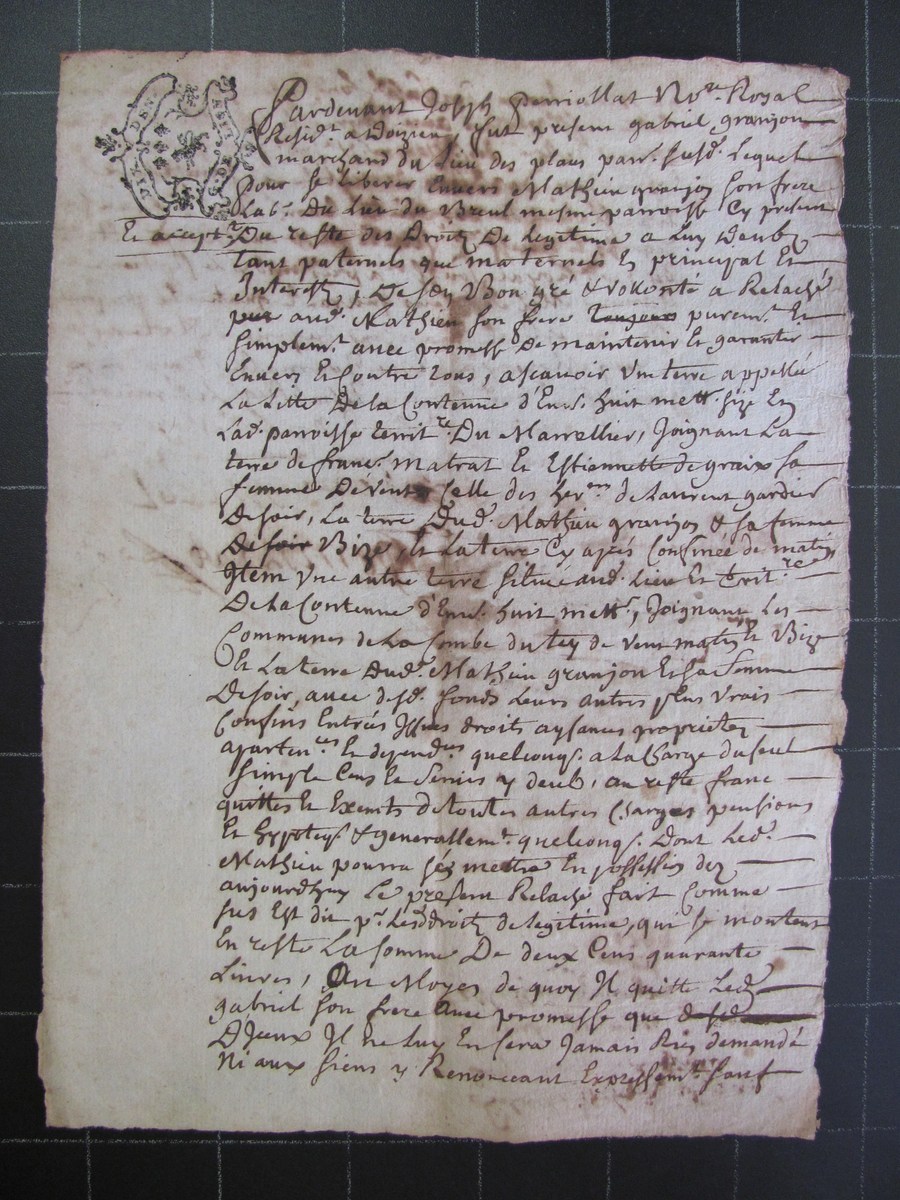 Pardevant Joseph Perriollat No.re Royal
Resid.t a Doizieu, fut present gabriel granjon
marchand du Lieu des plans parr. susd. Lequel
pour se liberer Envers Mathieu granjon son frere
Lab.r Du Lieu du Breul mesme parroisse Cy present
Et accept.t Du reste des Droitz De legitime a Luy deubz
tant paternels que maternels En principal Et
Interestz, De son Bon gré & vollonté a Relaché
aud. Mathieu son frere toujours purem.t Et
simplem.t avec promesse De maintenir Et garantir
Envers Et Contre tous, ascavoir Une terre appellée
La Litte De la Contenue d'Env. huit mett. size En
Lad. parroisse territ.re Du Marrellier, Joignant La
terre de franc. matrat Et Estiennette de graix sa
femme De vent Celle des her.ers de Laurent gardier
De soir, La terre Dud. Mathieu granjon & sa femme
De soir Bize, Et La terre Cy apres Confinée de matin
Item Une autre terre scituée aud. Lieu Et Territ.re
De la Contenue d'Env. huit mett., Joignant Les
Communes de La Combe du de vent matin Et Bize
Et La terre dud. Mathieu granjon Et sa femme
De soir, avec desd. fonds Leurs autres plus vrais
Confins Entrées Issues droits aysances proprietes
apartin.ces Et depend.ces quelconq. a La Charge du seul
simple Cens Et Servis y deub, au reste franc
quittes Et Exempts de toutes autres Charges pensions
Et hypoteq. & generallem.t quelconq. Dont Led.
Mathieu pourra se mettre En possession dez
aujourdhuy Le present Relaché fait Comme
sus Est dit p.r Lesd droitz de legitime, qui se montent
En reste La somme De deux Cens quarante
Livres, Au Moyen de quoy Il quitte Led.
gabriel son frere avec promesse que
D'Iceux Il ne Luy En sera Jamais Rien demandé
Ni aux siens y Renonceant Expressem.t sauf